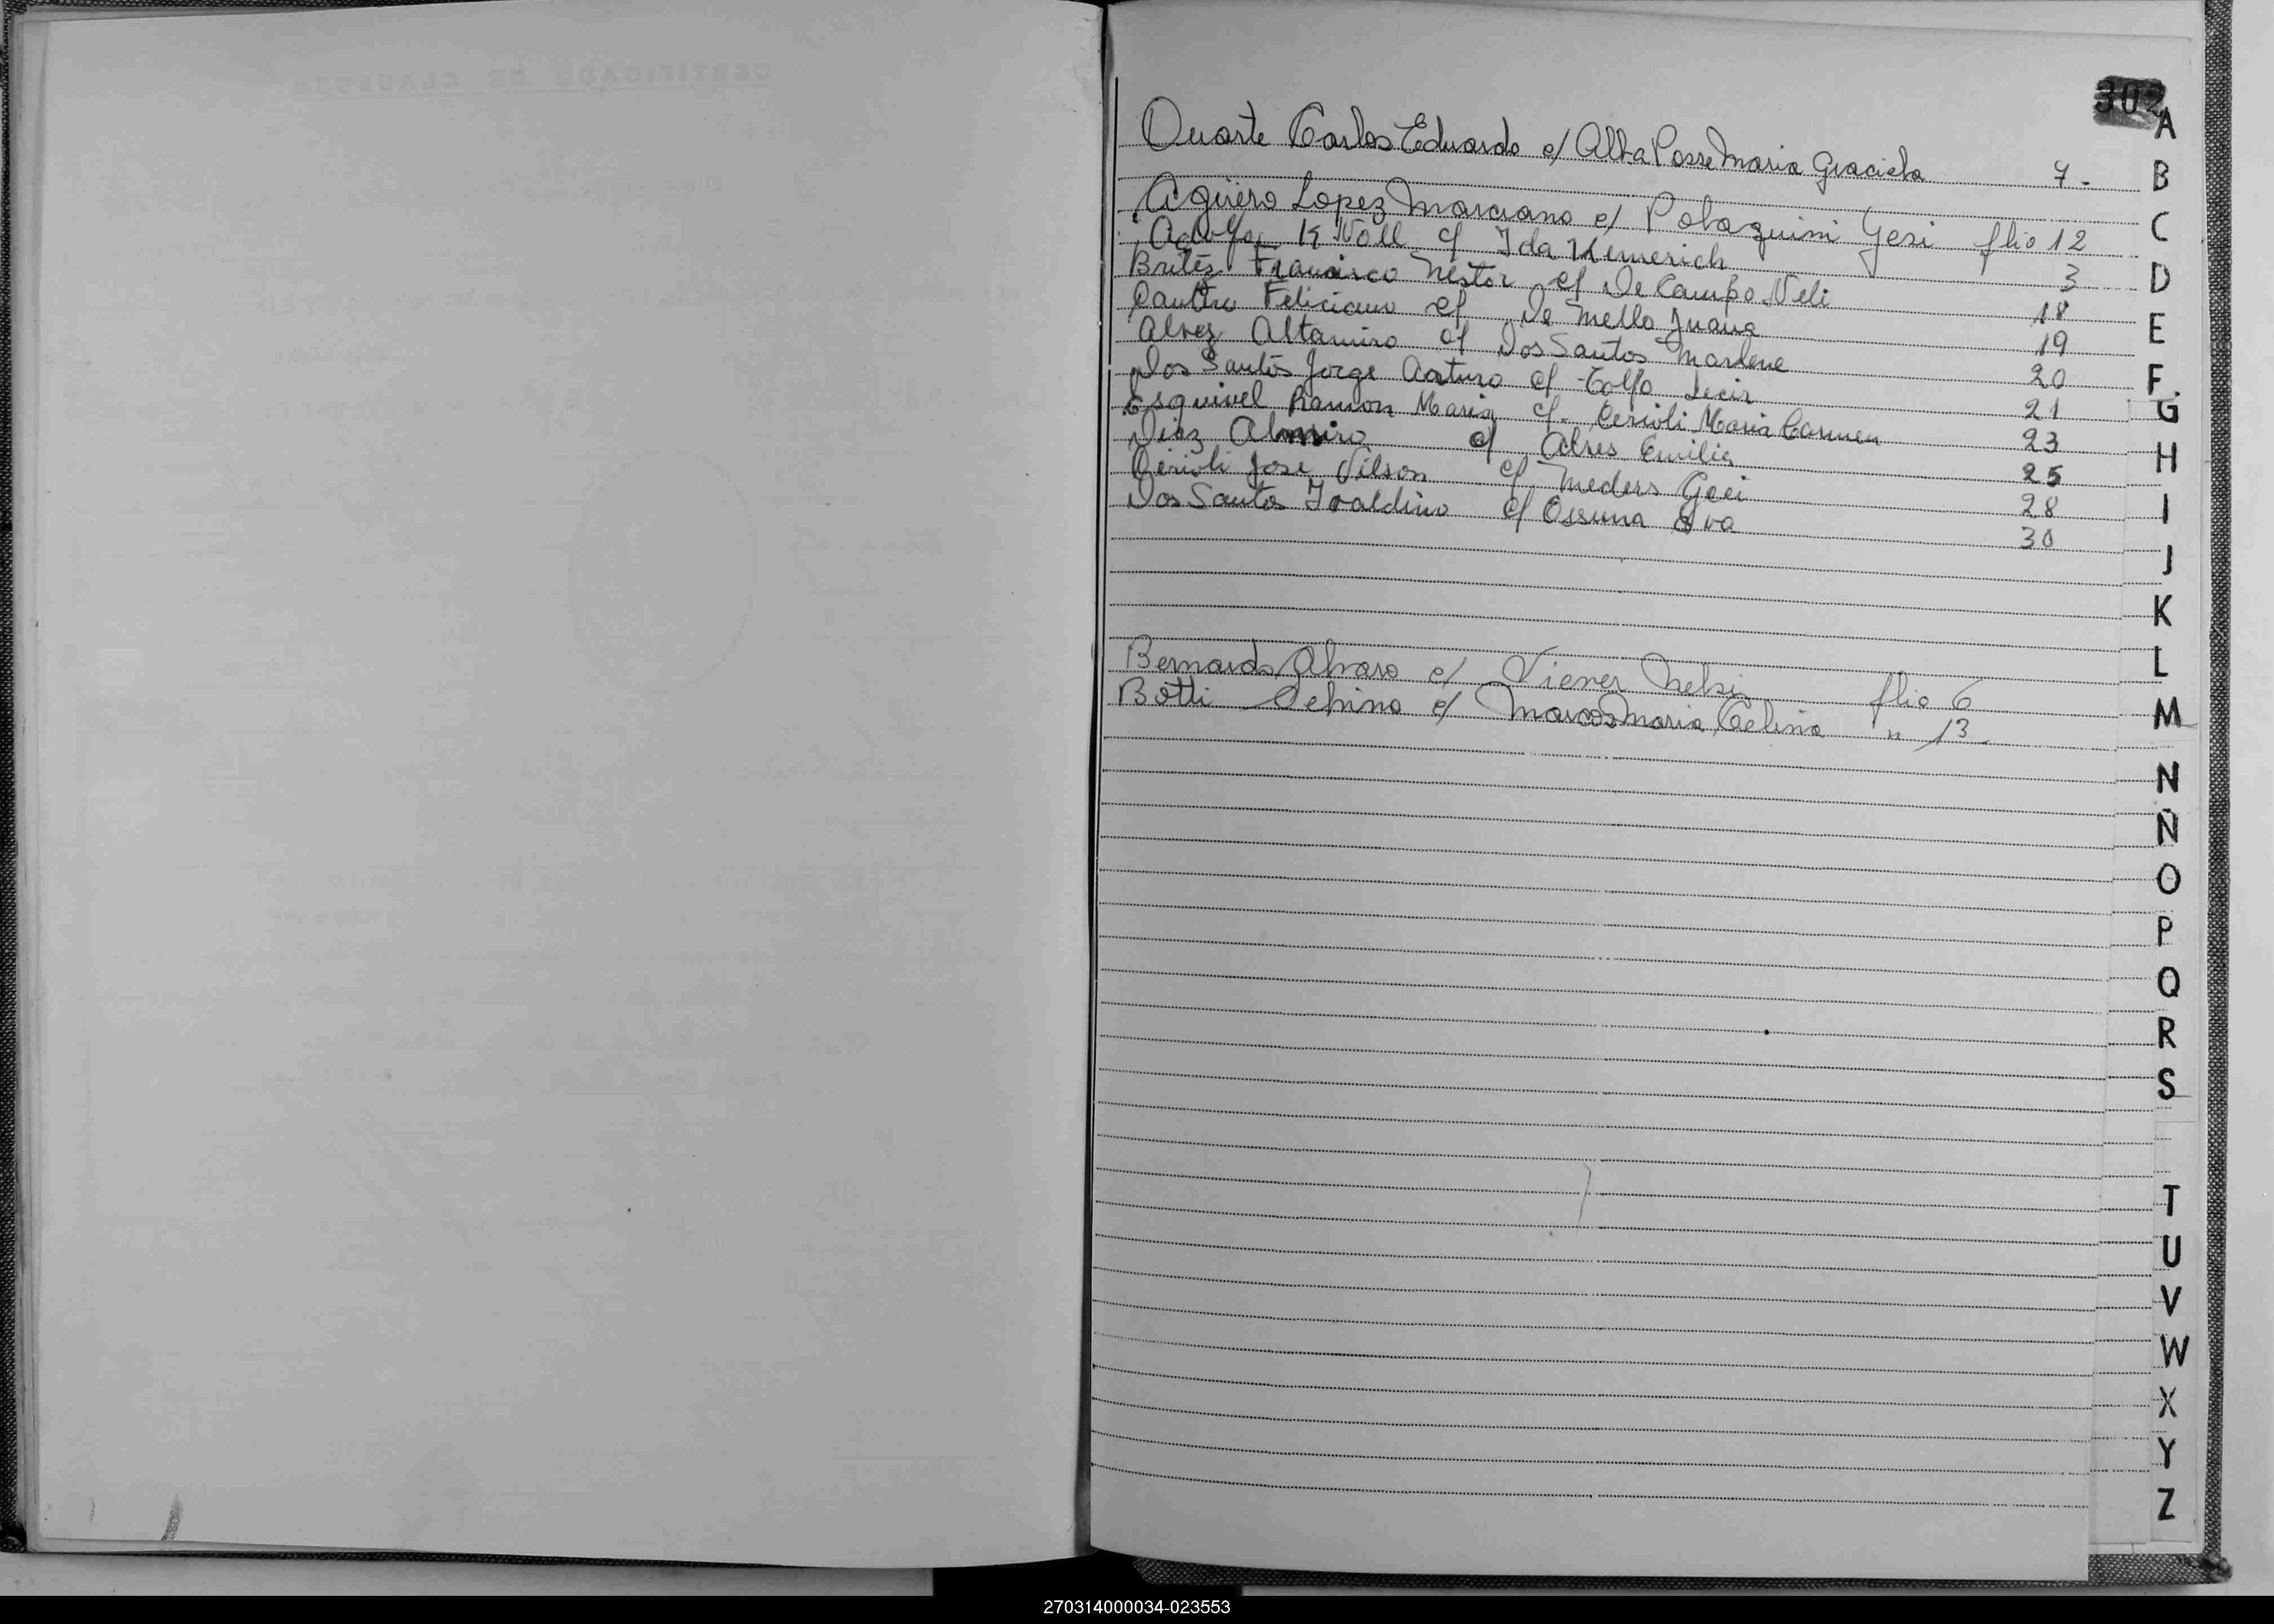 302
Duarte Carlos Eduardo c/ Alba Posse Maria Graciela 7.-
Agüero Lopez Marciano c/ Polaquini Geri flio 12
Adolfo K Noll c/ Ida Hemerich 3
Britéz Francisco Nestor c/ De Campo Neli 18
Feliciano c/ De Mello Juana 19
Alvez Altamiro c/ Dos Santos Marlene 20
Dos Santos Jorge Arturo c/ Tolfo 21
Esquivel Ramon Maria c/. Cerioli Maria Carmen 23
Diaz Almiro c/ Alves Emilia 25
Cerioli Jose Nilson c/ Meders 28
Dos Santos Ivaldino c/ Ossuna Eva 30
Bernardo Alvaro c/ Viener Nelsi flio 6
Botti c/ Marcos Maria Celina " 13
A
B
C
D
E
F
G
H
I
J
K
L
M
N
Ñ
O
P
Q
R
S
T
U
V
W
X
Y
Z
270314000034-023553